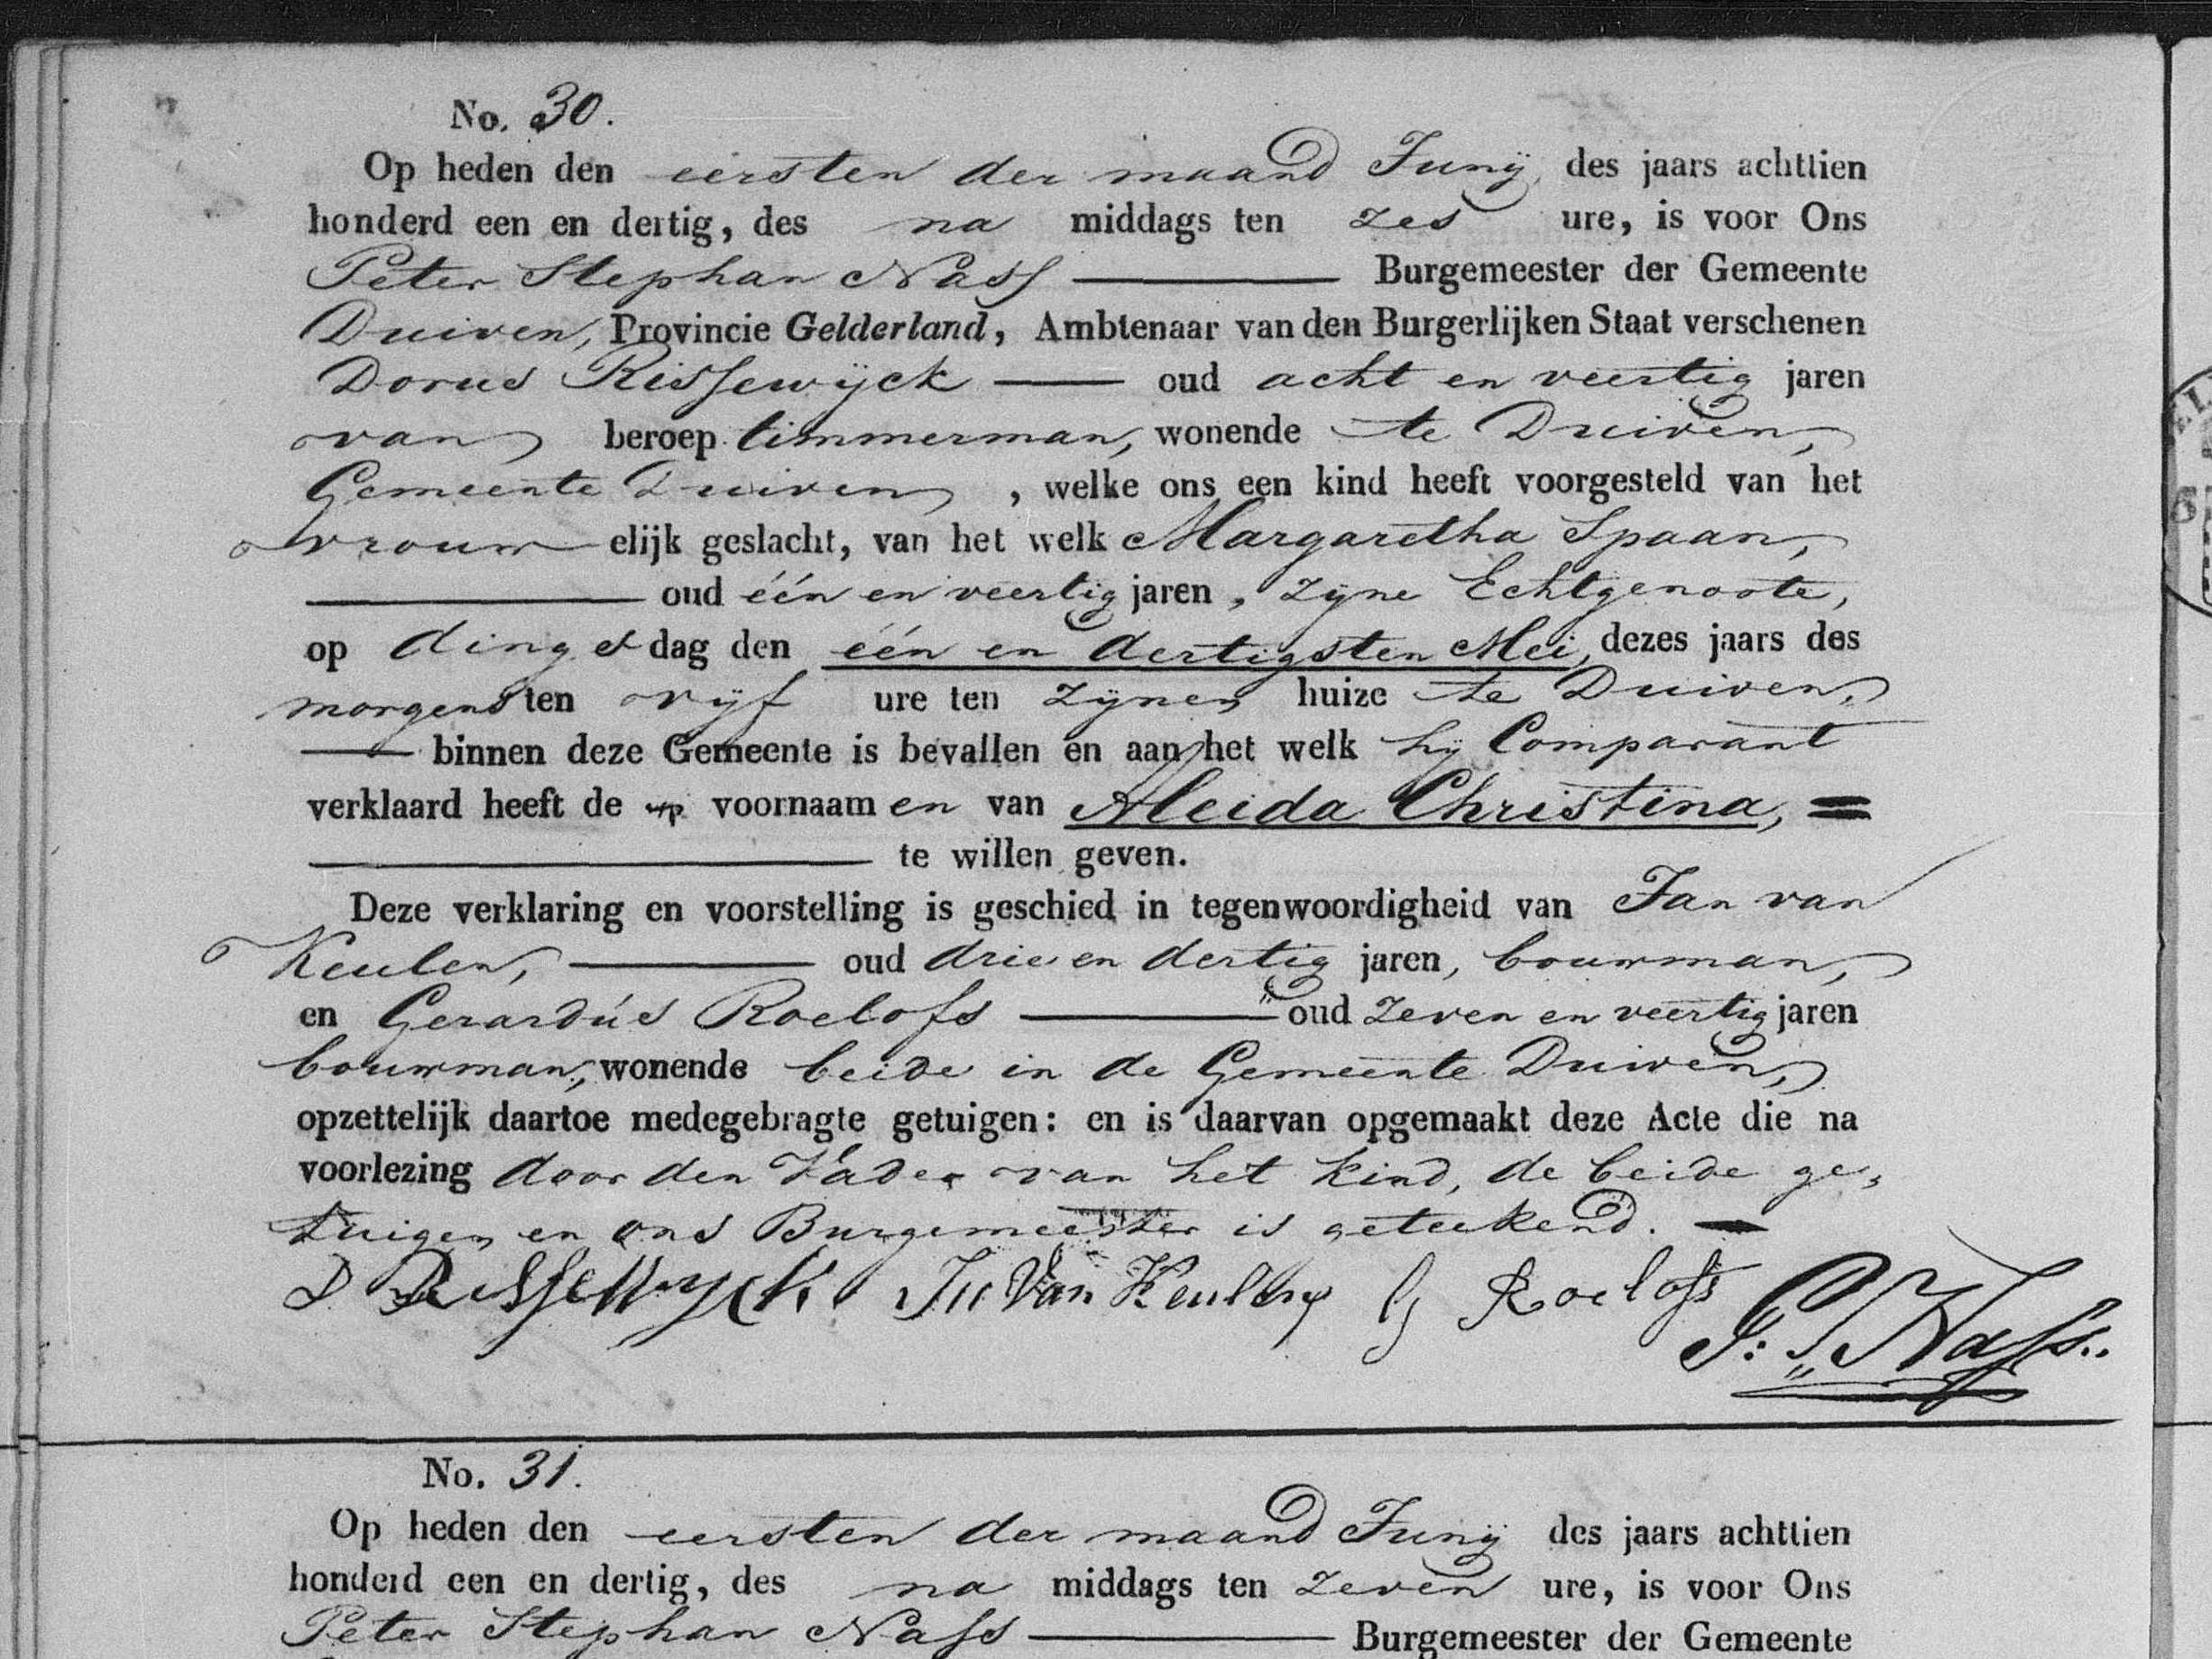 No. 30.
Op heden den eersten der maand Junij des jaars achttien
honderd een en dertig, des na middags ten zes ure, is voor Ons
Peter Stephan Nass Burgemeester der Gemeente
Duiven, Provincie Gelderland, Ambtenaar van den Burgerlijken Staat verschenen
Dorus Rissewijck oud acht en veertig jaren
van beroep timmerman, wonende te Duiven,
Gemeente Duiven, welke ons een kind heeft voorgesteld van het
vrouwelijk geslacht, van het welk Margaretha Spaan,
oud één en veertig jaren, zijne Echtgenoote,
op dingsdag den één en dertigsten Mei, dezes jaars des
morgens ten vijf ure ten zijnen huize te Duiven,
binnen deze Gemeente is bevallen en aan het welk hij Comparant
verklaard heeft de voornaamen van Aleida Christina, =
te willen geven.
Deze verklaring en voorstelling is geschied in tegenwoordigheid van Jan van
Keulen, oud drie en dertig jaren, bouwman,
en Gerardús Roelofs oud zeven en veertig jaren
bouwman, wonende beide in de Gemeente Duiven,
opzettelijk daartoe medegebragte getuigen: en is daarvan opgemaakt deze Acte die na
voorlezing door den Vader van het kind, de beide ge-
tuigen en ons Burgemeester is geteekend.
D Rissewyck Jn Van Keulen G Roelofs
P: S Nass..
No. 31.
Op heden den eersten der maand Junij des jaars achttien
honderd een en dertig, des na middags ten zeven ure, is voor Ons
Peter Stephan Nass Burgemeester der Gemeente